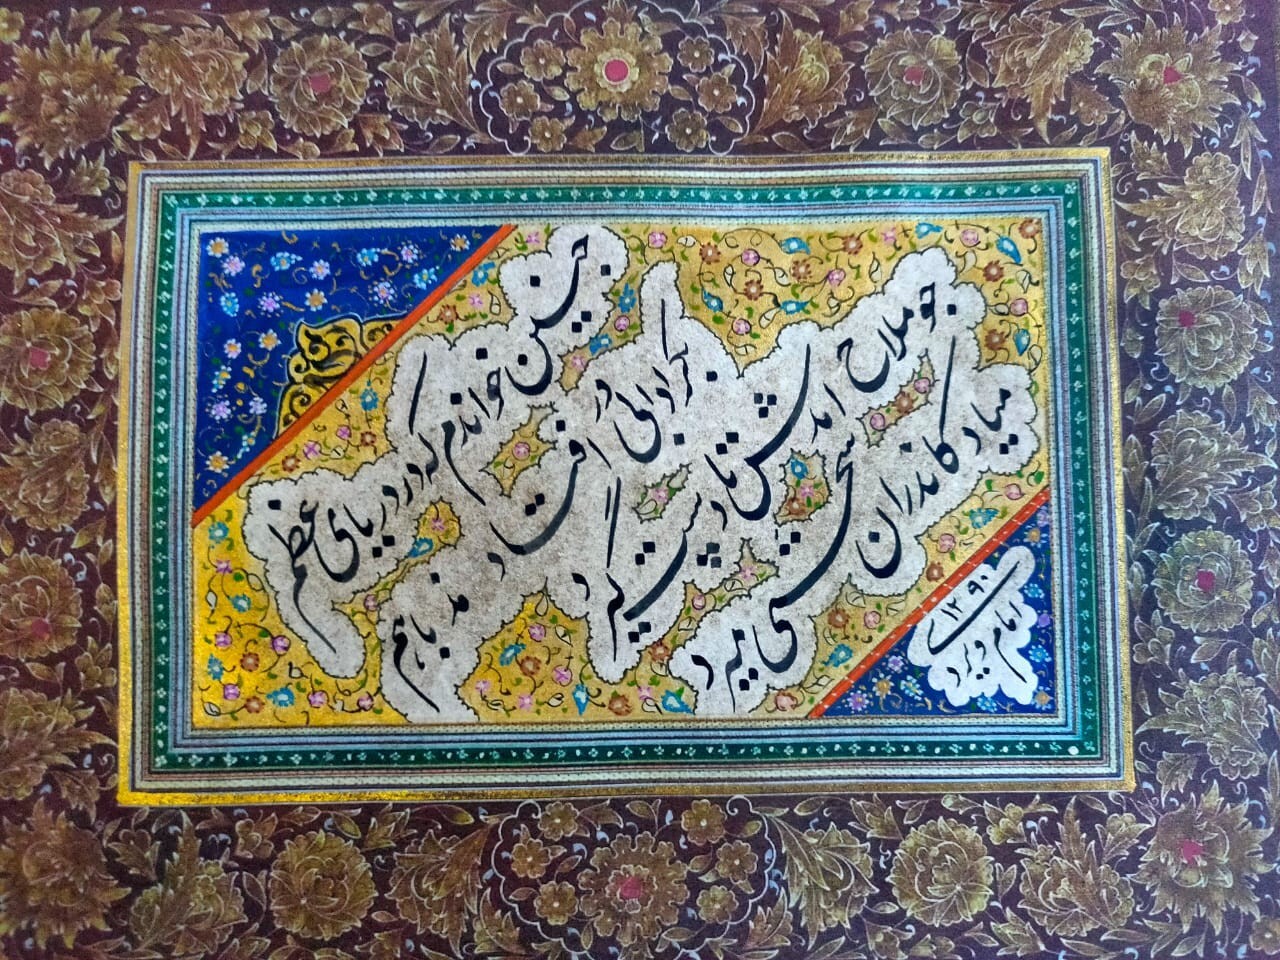 چنین خواندم که در دریای اعظم
بگردابی در افتادند باهم
چو ملاح امدش تا دست گیرد
مبادا کاندران سختی بمیرد
امام ویردی ۱۲۹۰